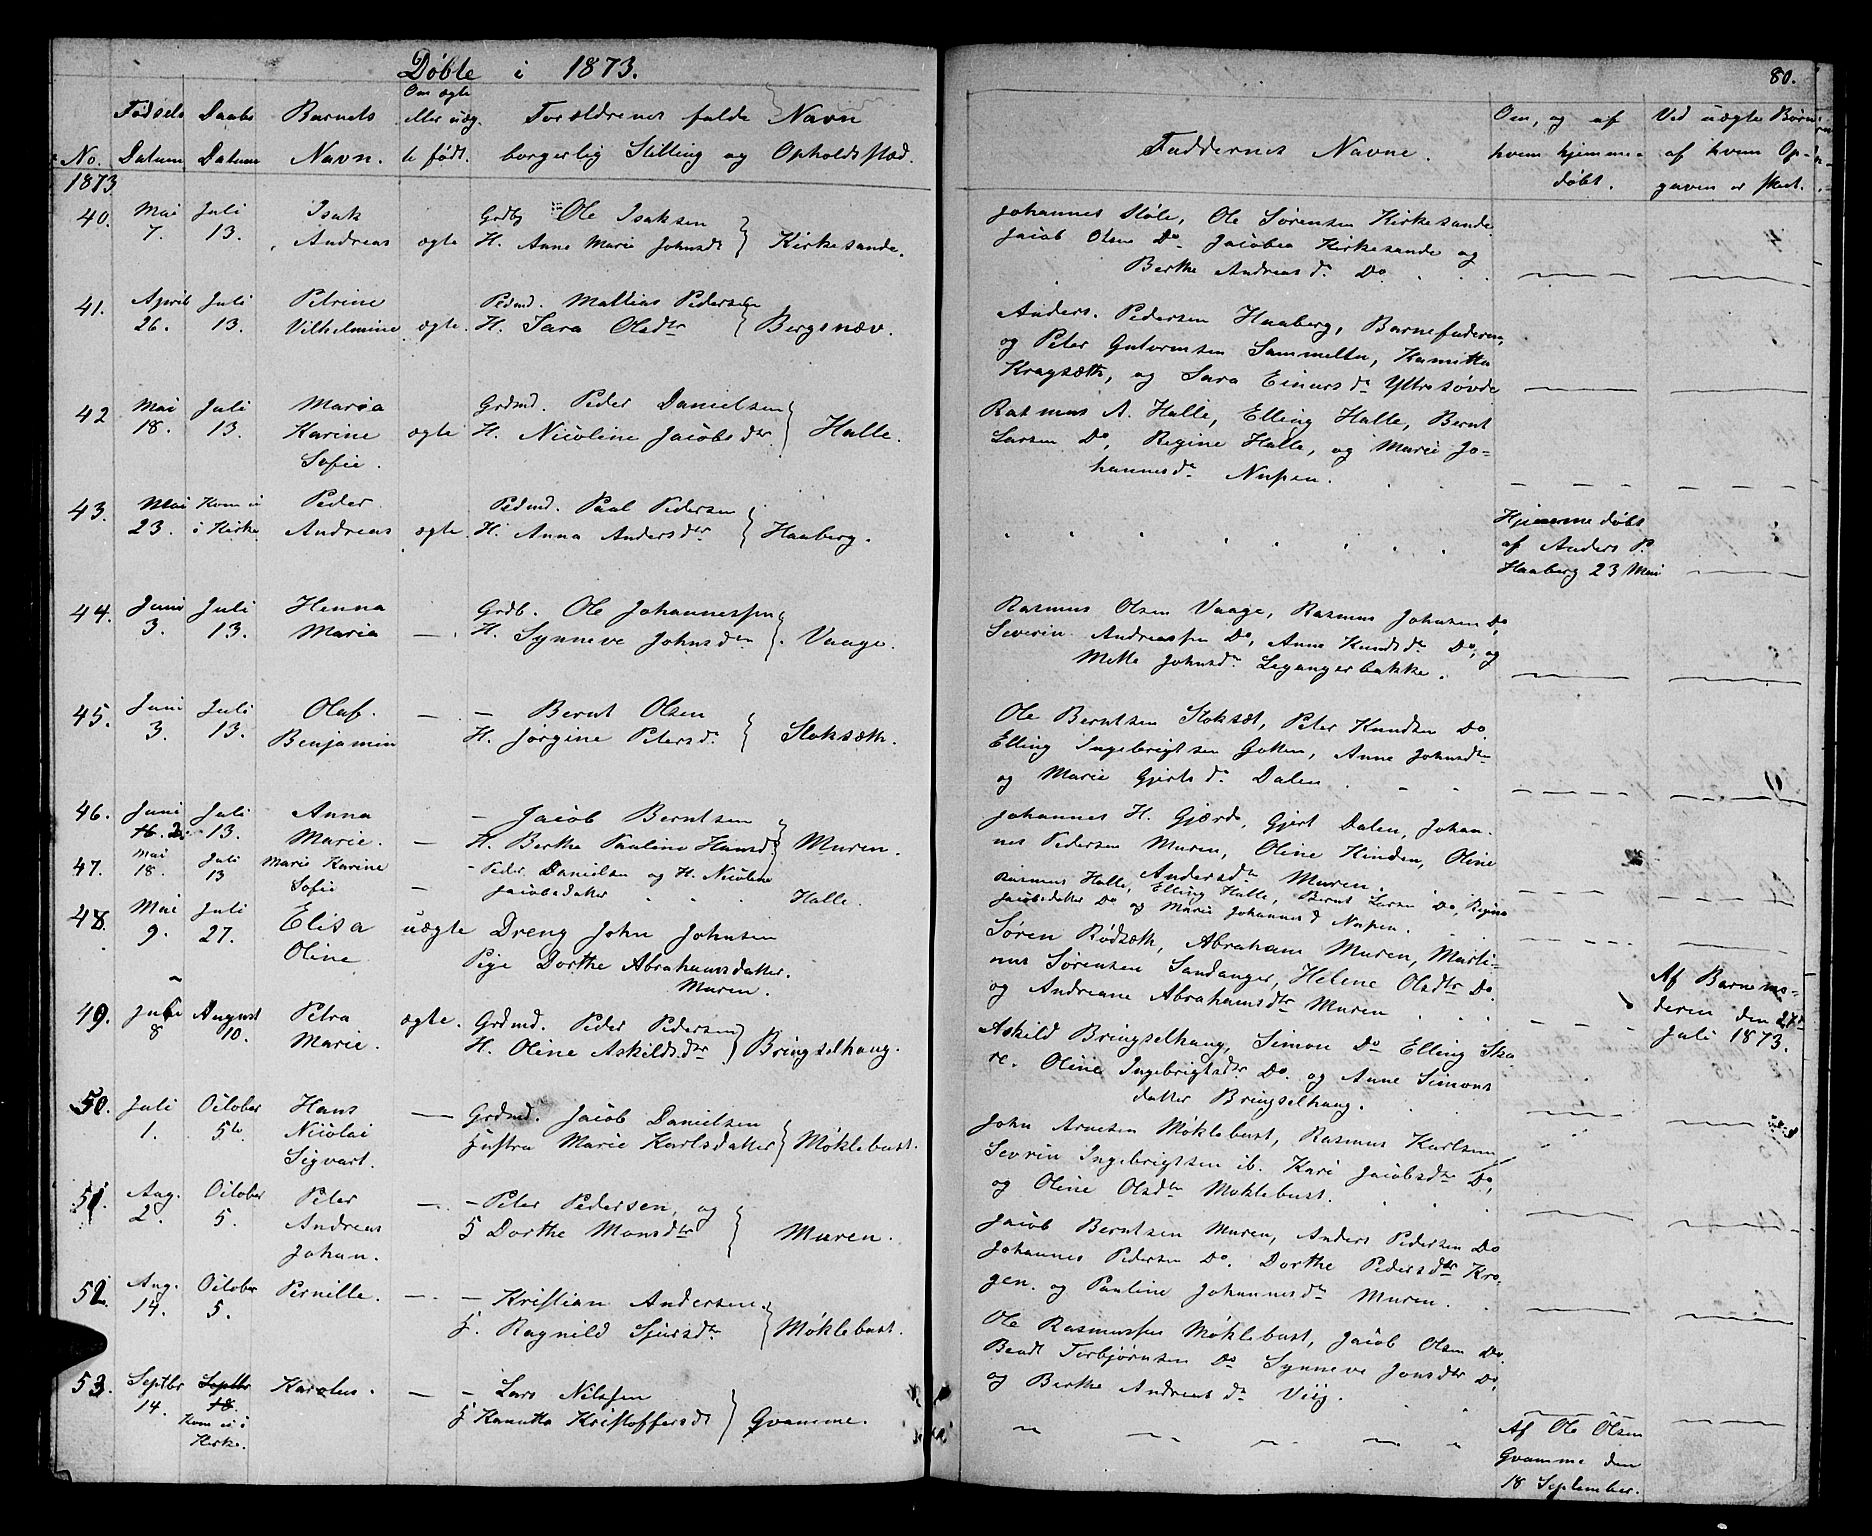 Døbte i 1873.
80.
No. Fødsels Datum Daabs Datum Barnets Navn. Om ægte eller uæg-te født. Forældrenes fulde Navn borgerlig Stilling og Opholdssted.
Faddernes Navne.
Om, og af hvem hjemme-døbt.
Ved uægte Børn af hvem Op-gaven er skeet.
1873
40. Mai 7. Juli 13. Isak Andreas ægte Grdb Ole Isaksen
H. Anne Marie Johnsdt Kirkesande.
Johannes Støle, Ole Sørensen Kirkesande
Jacob Olsen Do Jacobea Kirkesande og
Berthe Andreas dr Do
41. April 26. Juli 13. Petrine Vilhelmine ægte. Pedmd. Mattias Pedersen
H. Sara Olsdtr Bergsnæv.
Anders Pedersen Haaberg, Barnefaderen,
og Peter Gutormsen Sammelten, Kamitta
Kragsæth, og Sara Einars dr Yttresøvde
42 Mai 18. Juli 13. Maria Karine Sofie. ægte Grdmd. Peder Danielsen
H. Nicoline Jacobsdtr Halle.
Rasmus A. Halle, Elling Halle, Bernt
Larsen Do, Regine Halle, og Marie Jo-
hannesdr Nupen.
43. Mai 23. Kom ei i Kirke Peder Andreas ægte Pedmd. Paul Pedersen
H. Anna Andersdtr Haaberg.
Hjemmedøbt
af Anders P.
Haaberg 23 Mai
44. Juni 3. Juli 13. Henna Maria — Grdb. Ole Johannessen
H. Synneve Johnsdtr Vaage.
Rasmus Olsen Vaage, Rasmus Johnsen Do,
Severin Andreassen Do, Anne Knudsdr Do, og
Mette Johnsdr Legangerbakke.
45. Juni 3. Juli 13. Olaf Benjamin — — Bernt Olsen
H. Jørgine Petersdr Stoksæth.
Ole Berntsen Stoksæt, Peter Knudsen Do.
Elling Ingebrigtsen Gotten, Anne Johnsdtr
og Marie Gjertsdr Dalen
46. Juni 16. 2. Juli 13. Anna Marie. — — Jacob Berntsen
H. Berthe Pauline Hansd Muren.
Johannes H. Gjærde, Gjert Dalen, Johan-
nes Pedersen Muren, Oline Hinden, Oline
Andersdtr Muren.
47. Mai 18. Juli 13 Marie Karine Sofie — — Peder Danielsen og H. Nicoline
Jacobsdatter Halle.
Rasmus Halle, Elling Halle, Bernt Larsen Do, Regine
Jacobsdatter Do og Marie Johannesd Nupen.
48. Mai 9. Juli 27. Elisa Oline uægte Dreng John Johnsen
Pige Dorthe Abrahamsdatter.
Muren.
Søren Rødsæth, Abraham Muren, Marti-
nus Sørensen Sandanger, Helene Olsdtr Do.
og Andreane Abrahamsdtr Muren
Af Barnemo-
deren den 27de
Juli 1873.
49. Juli 8 August 10. Petra Marie. ægte. Grdmd. Peder Pedersen
H. Oline Askildsdtr Bringselhaug.
Askild Bringselhaug, Simon Do Elling Ska
re. Oline Ingebrigtsdtr Do. og Anne Simons
datter Bringselhaug.
50. Juli 1. October 5te Hans Nicolai Sigvart. — Grdmd. Jacob Danielsen
Hustru Marie Karlsdatter Møklebust.
John Arnesen Møklebust, Rasmus Karlsen
Sevrin Ingebrigtsen ib. Kari Jacobsdtr Do,
og Oline Olsdtr Møklebust.
51. Aug. 2. October 5. Peter Andreas Johan. — — Peter Pedersen, og
H Dorthe Monsdtr Muren.
Jacob Berntsen Muren, Anders Pedersen Do
Johannes Pedersen Do. Dorthe Pedersdtr Kro-
gen. og Pauline Johannesdtr Muren.
52. Aug. 14. October 5. Pernille. — — Kristian Andersen.
H. Ragnild Sjursdtr Møklebust.
Ole Rasmussen Møklebust, Jacob Olsen Do.
Bendt Torbjørnsen Do Synneve Jonsdtr Do,
og Berthe Andreas dr Viig.
53. Septbr 14. Septbr 18. Kom ei i Kirke. Karolus. — — Lars Nilssen
H Kanutta Kristoffersdt Gvamme.
Af Ole Olsen
Gvamme den
18 September.